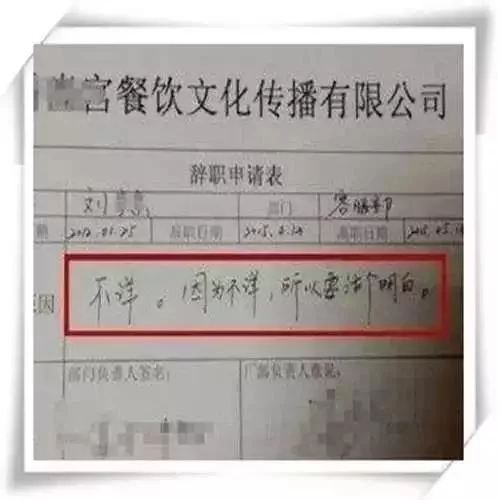 宫餐饮文化传播有限公司
辞职申请表
刘 部门 客服部
2012.01.25 辞职日期 2015.0 离职日期
因 不详。因为不详，所以要活个明白。
部门负责人签名： 厂部负责人意见：